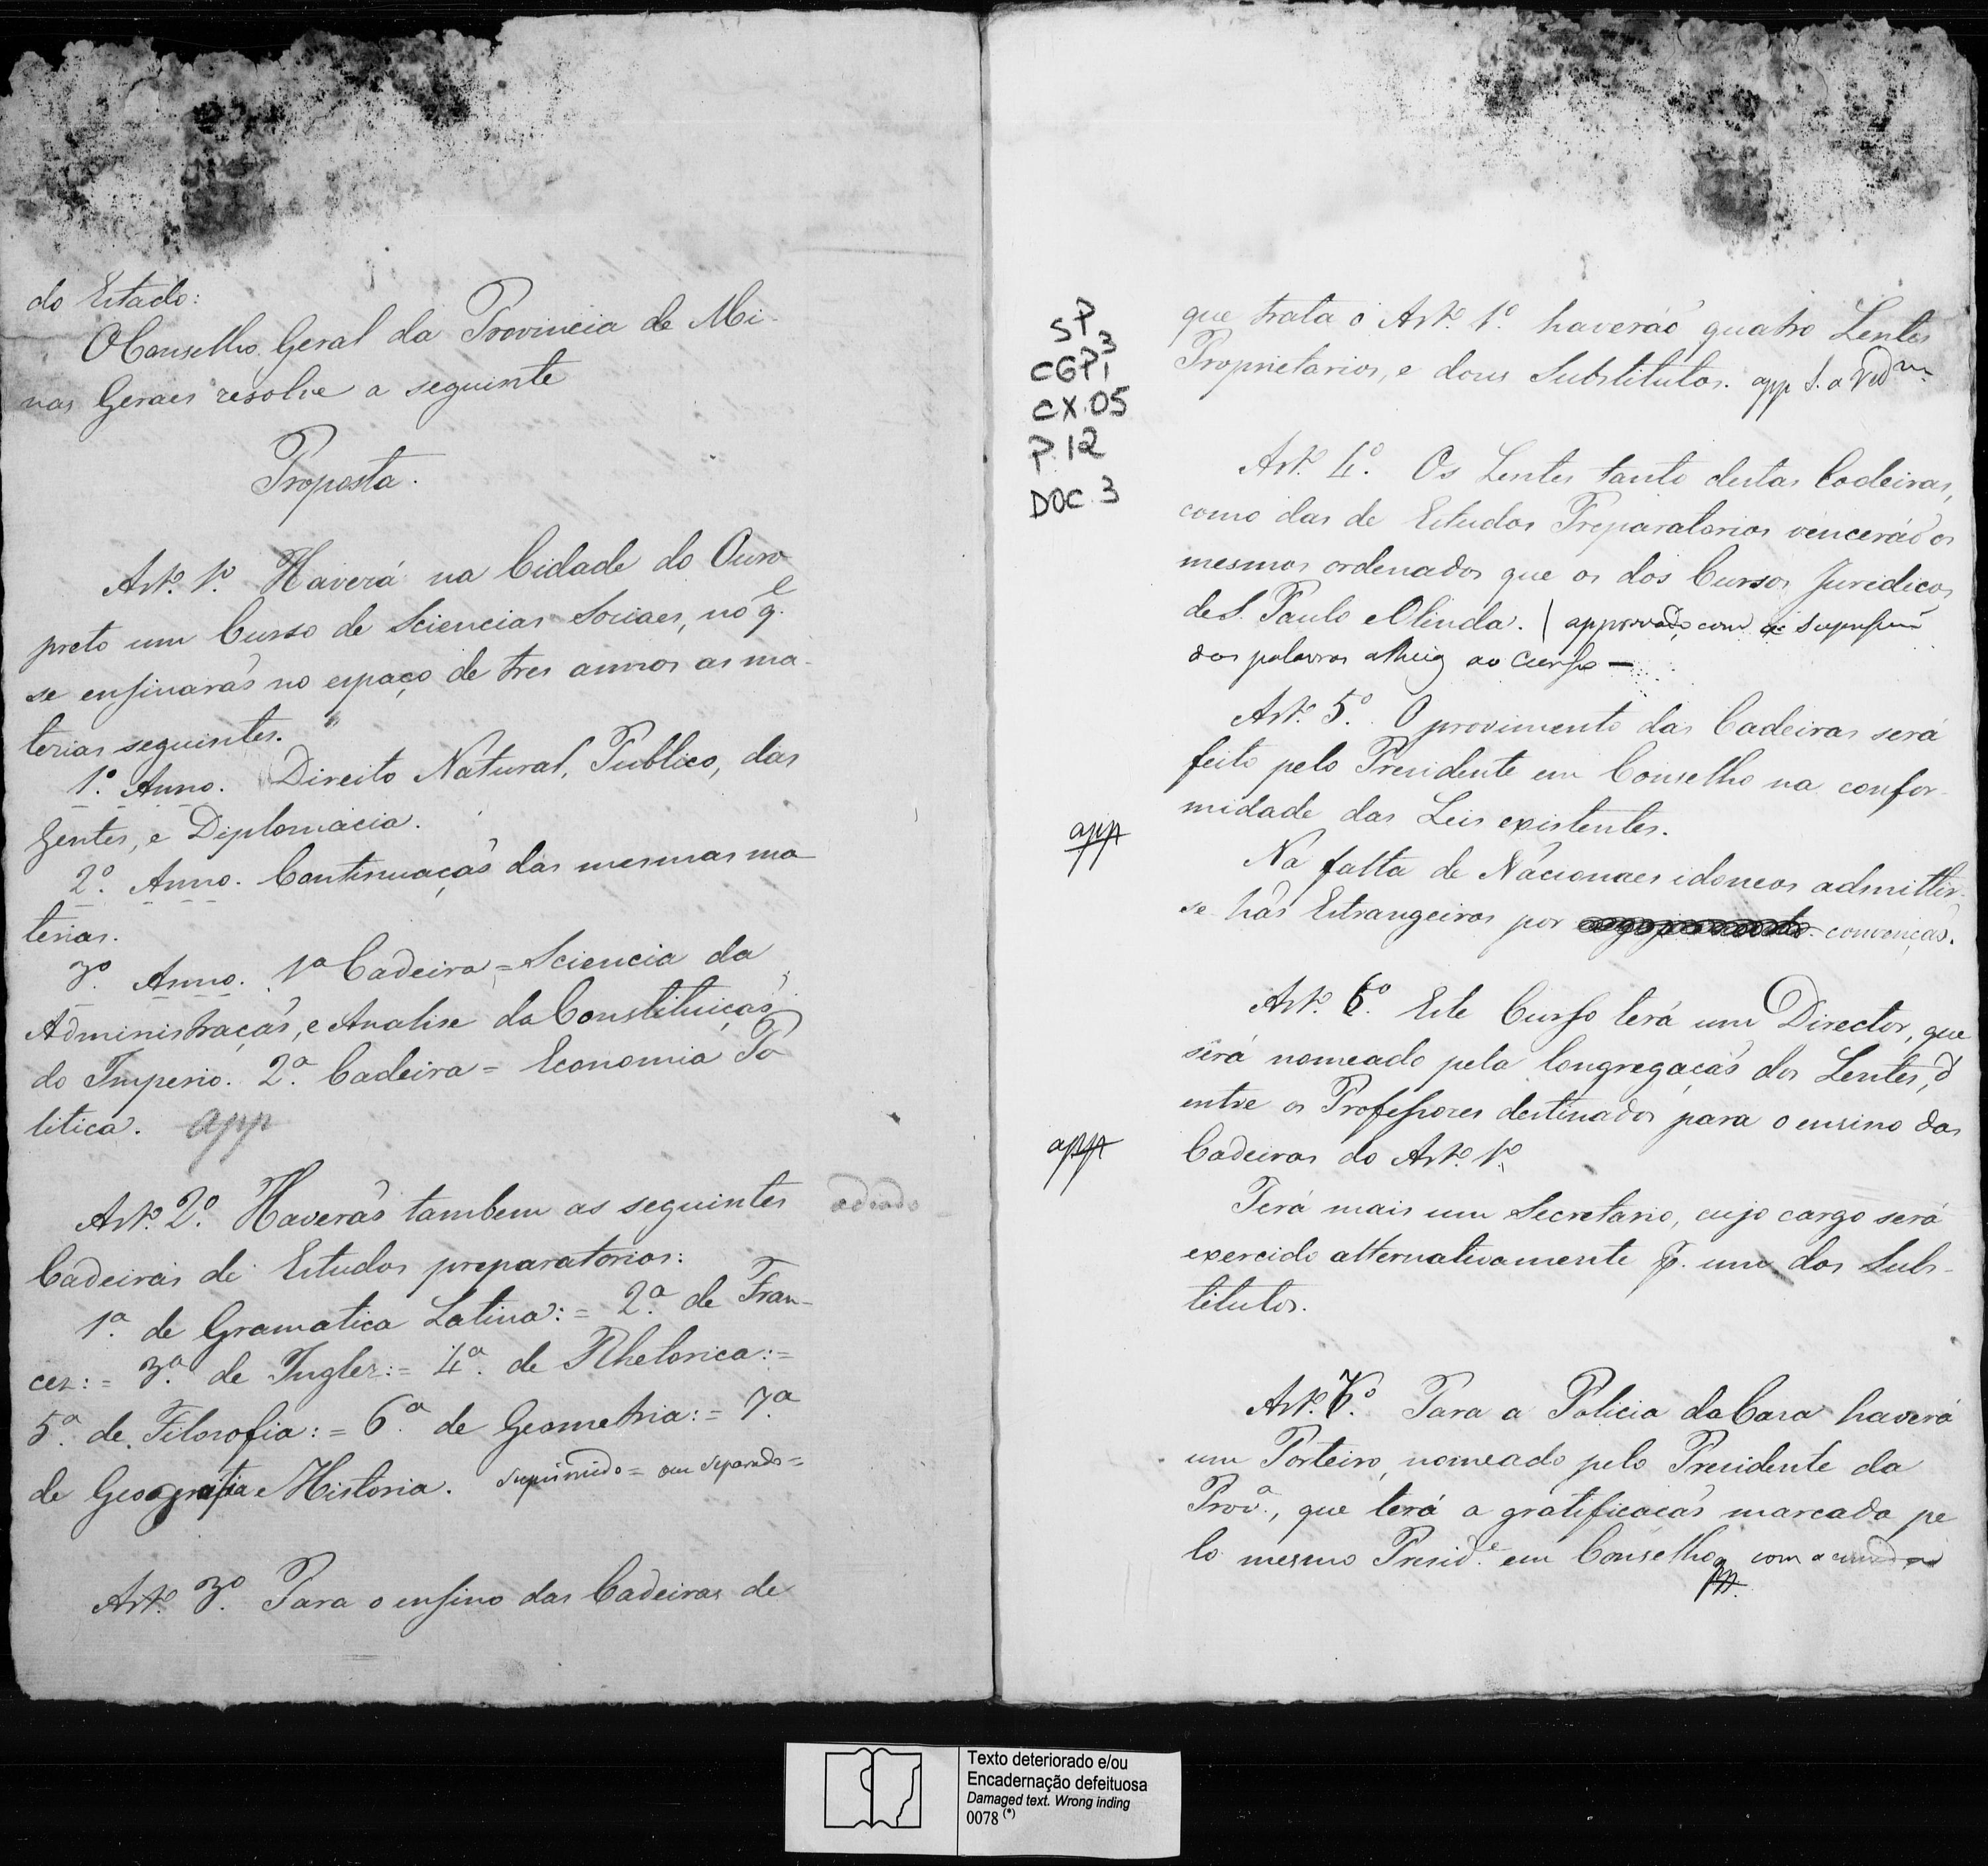 do Estado:
O Conselho Geral da Provincia de Mi-
nas Geraes resolve a seguinte
Proposta.
Art.º 1.º Haverá na Cidade do Ouro
preto um Curso de Sciencias Sociaes, no q.e
se ensinarão no espaço de tres annos as ma-
terias seguintes.
1.º Anno. Direito Natural, Publico, das
Gentes, e Diplomacia.
2.º Anno. Continuação das mesmas ma-
terias.
3.º Anno. 1.ª Cadeira = Sciencia da
Administração, e Analise da Constituição
do Imperio. 2.ª Cadeira = Economia Po
litica. app
Art.º 2.º Haverão tambem as seguintes
adiado
Cadeiras de Estudos preparatorios:
1.ª de Gramatica Latina: = 2.ª de Fran-
cez: = 3.ª de Inglez: = 4.ª de Rhetorica: =
5.ª de Filosofia: = 6.ª de Geometria: = 7.ª
de Geografia e Historia. suprimido = em separado =
Art.º 3.º Para o ensino das Cadeiras de
SP
CGP1 3
CX.05
P.12
DOC.3
que trata o Art.º 1.º haverão quatro Lentes
Proprietarios, e dous Substitutos. app S. a red.m
Art.º 4.º Os Lentes tanto destas Cadeiras,
como das de Estudos Preparatorios vencerão os
mesmos ordenados que os dos Cursos Juridicos
de S. Paulo e Olinda. | approvado com a supressão
das palavras ao Curso —
Art.º 5.º O provimento das Cadeiras será
feito pelo Presidente em Conselho na confor-
midade das Leis existentes.
app
Na falta de Nacionaes idoneos admittir-
se hão Estrangeiros por convenção.
Art.º 6.º Este Curso terá um Director, que
será nomeado pela Congregação dos Lentes, d
entre os Professores destinados para o ensino das
Cadeiras do Art.º 1.º
app
Terá mais um Secretario, cujo cargo será
exercido alternativamente p. um dos Subs-
titutos.
Art.º 7.º Para a Policia da Casa haverá
um Porteiro, nomeado pelo Presidente da
Prov.ª, que terá a gratificação marcada pe
lo mesmo Presid.e em Conselho com a
app.
Texto deteriorado e/ou
Encadernação defeituosa
Damaged text. Wrong inding
0078 (*)